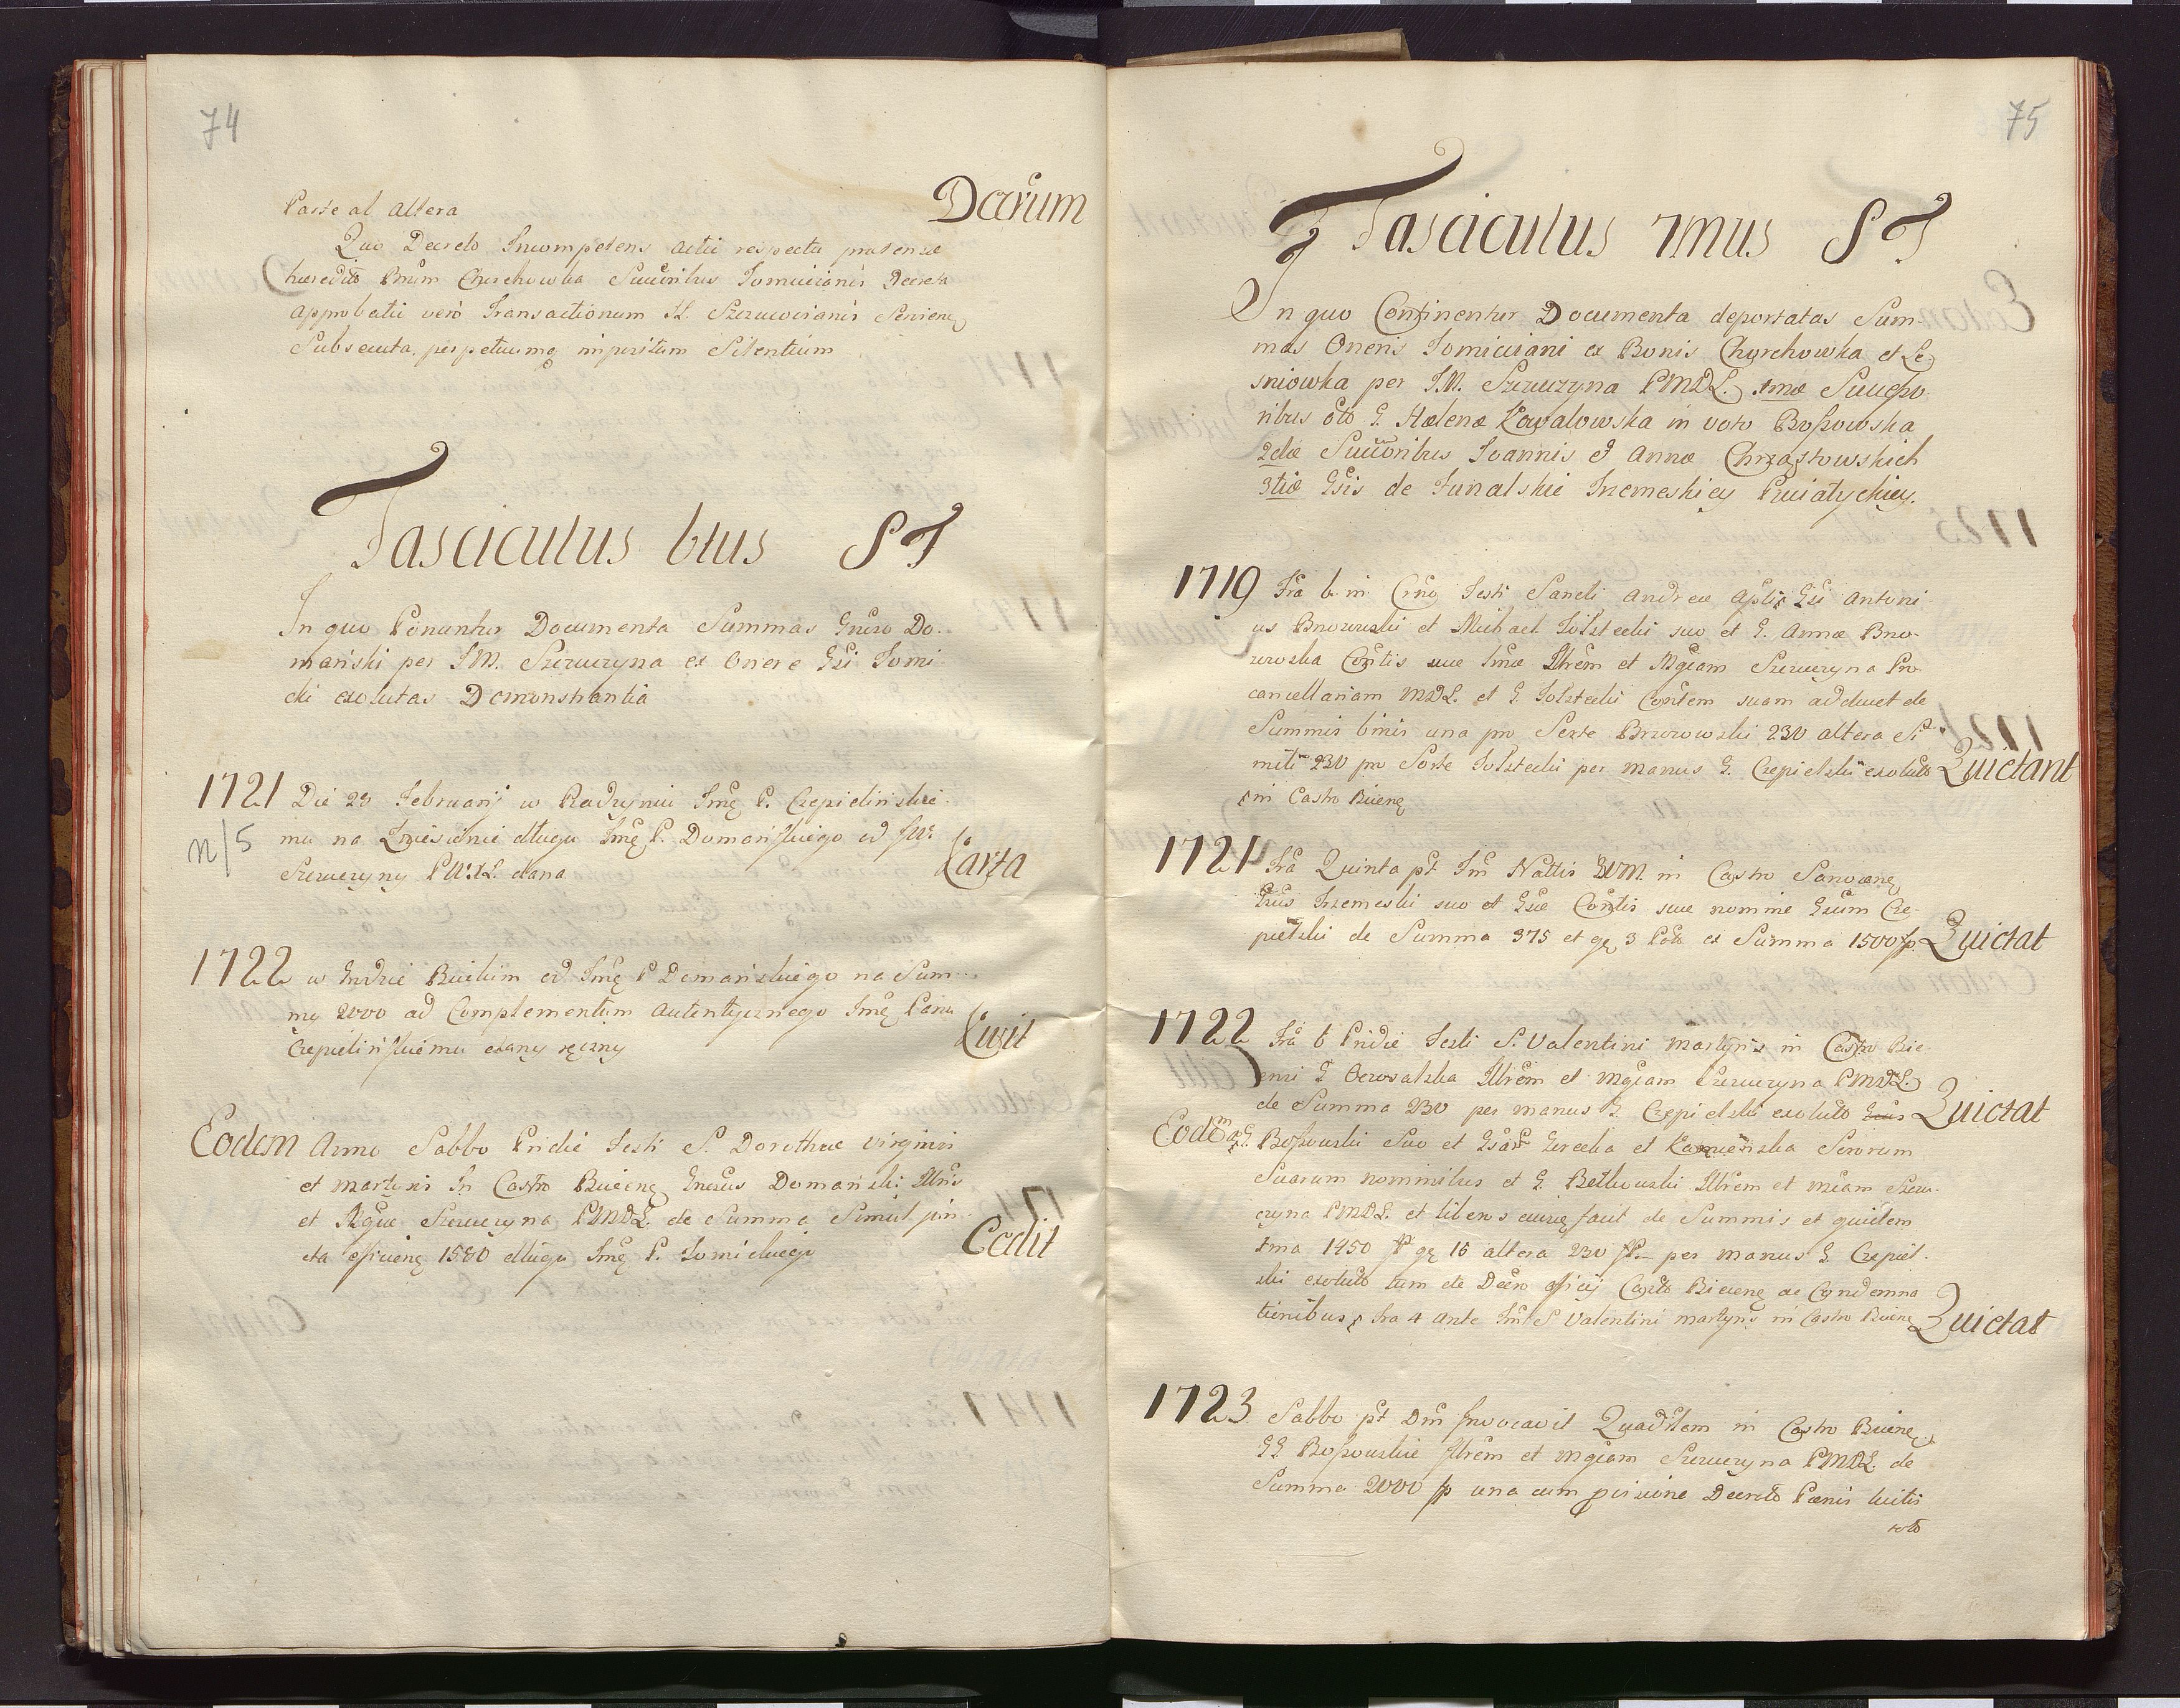 74
Parte ab altera
Decretum
Quo Decreto Incompetens actii respectu prætensæ
hæredito Bnrum Churchowka Successoribus Tomicianis Decreta
approbatii verò Transactionum Szczucianis
Subsecuta, perpetuumq impositum Silentium
Fasciculus 6tus ST
In quo Ponuntur Documenta Summas Gnroso Do-
mański per J.M. Szczuczyna ex Onere Gsi Tomi-
cki exolutas Demonstrantia
1721 Die 28 Februarij w Radzynui Jmę P. Czepielińskie-
n/5
mu na Zniesienie długu Jmę P. Domańskiego od JW.
Szczuczyny PWXL. dana
Carta
1722 w Grodzie Buskim od Jmę P Domańskiego na Sum-
mę 2000 ad Complementum autentycznego Jmę Panu
Czepielińskiemu dany ręczny
Kwit
Eodem Anno Sabbo Pridie Festi S. Dorotheæ Virginis
et Martyris In Castro Buscenę Gnrsus Domański Illris
et Mgæ Szczuczyna PMDL. de Summa Simul jun-
cta efficienę 1580 długu Jmę P. Tomickiego
Cedit
75
Fasciculus 7mus ST
In quo Continentur Documenta deportatas Sum-
mas Oneris Tomiciani ex Bonis Churchowka et Le-
sniowka per J.M. Szczuczyna PMDL. 1mæ Succeso-
ribus olo G. Helenæ Kowalowska in voto Bossowska
2dæ Successoribus Joannis et Annæ Chrząstowskich
3tiæ Gsis de Trzemeskiey Kwiatyckiey.
1719 Fra 6. in Crno Festi Sancti Andreæ Apli Gsi Antoni-
us Brzozowski et Michael Tolstecki suo et G. Annæ Brzo-
zowska Contis suæ Imæ Illrem et Mgcam Szczuczyna Pro-
cancellariam MDL. et G. Tolstecki Contem suam adducet de
Summis binis una pro Sorte Brzozowski 230 altera Si-
mili 230 pro Sorte Tolstecki per manus G. Czepielski exoluto
Quietant
in Castro Buscenę
1721 Fra Quinta pt Fm Nattis BVM. in Castro Sanocenę
Gnrsus Trzemeski suo et Gsæ Contis suæ nomine Gsum Cze-
pielski de Summa 375 et gę 3 Pols ex Summa 1500 fp.
Quietat
1722 Fra 6 Pridie Festi S. Valentini Martyris in Castro Bie-
censi G Illrem et Mgcam Szczuczyna PMDL.
de Summa 230 per manus G. Czepielski exoluto
Quietat
Eodem
Bossowski Suo et Gsar Gerecka et Kamieńska Sororum
Suarum nominibus et G. Betkowski Illrem et Mcam Szczu-
czyna PMDL. et liberos eius facit de Summis et quidem
1ma 1450 fp gę 15 altera 230 fp. per manus G. Czepiel-
ski exoluto tum de Decro officij Castr Biecenę ac Condemna
tionibus, Fra 4 ante Fm S Valentini martyris in Castro Biecenę
Quietat
1723 Sabbo pt Dm Invocavit Quadrlem in Castro Biecenę
GG Bossowskie Illrem et Mgcam Szczuczyna PMDL. de
Summa 2000 fp una cum provisione Decreto Pœnis luitis
solo